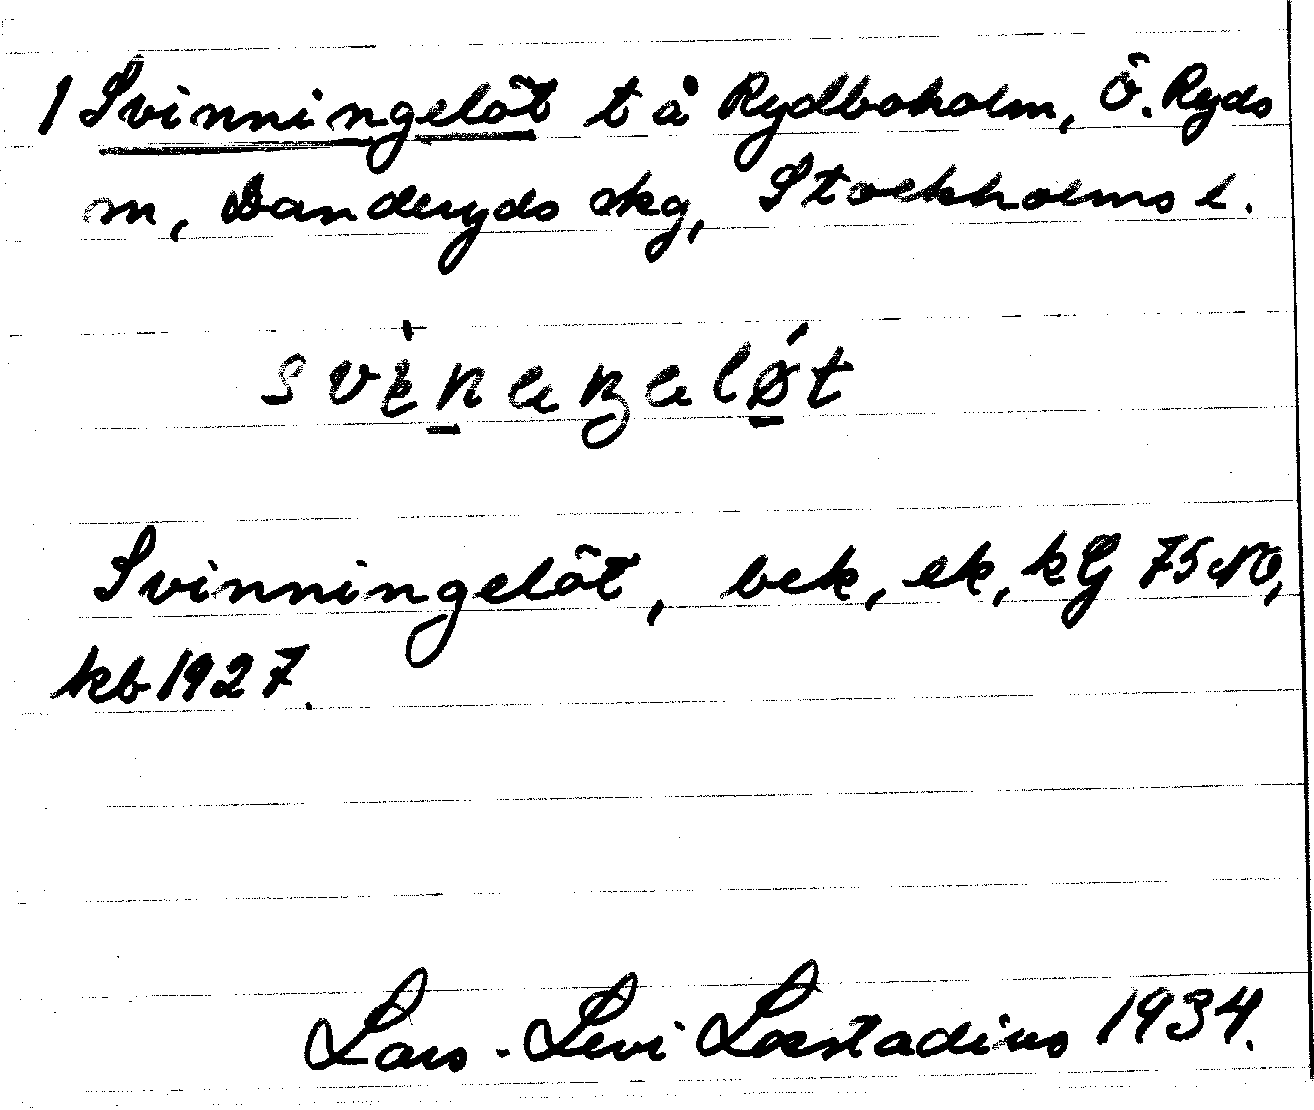 1 Svinningelöt t å Rydboholm, Ö. Ryds
m, Danderyds skg, Stockholms l.
Svinningelöt, bek, ek, kG 75 NO,
kb 1927.
Lars-Levi Læstadius 1934.